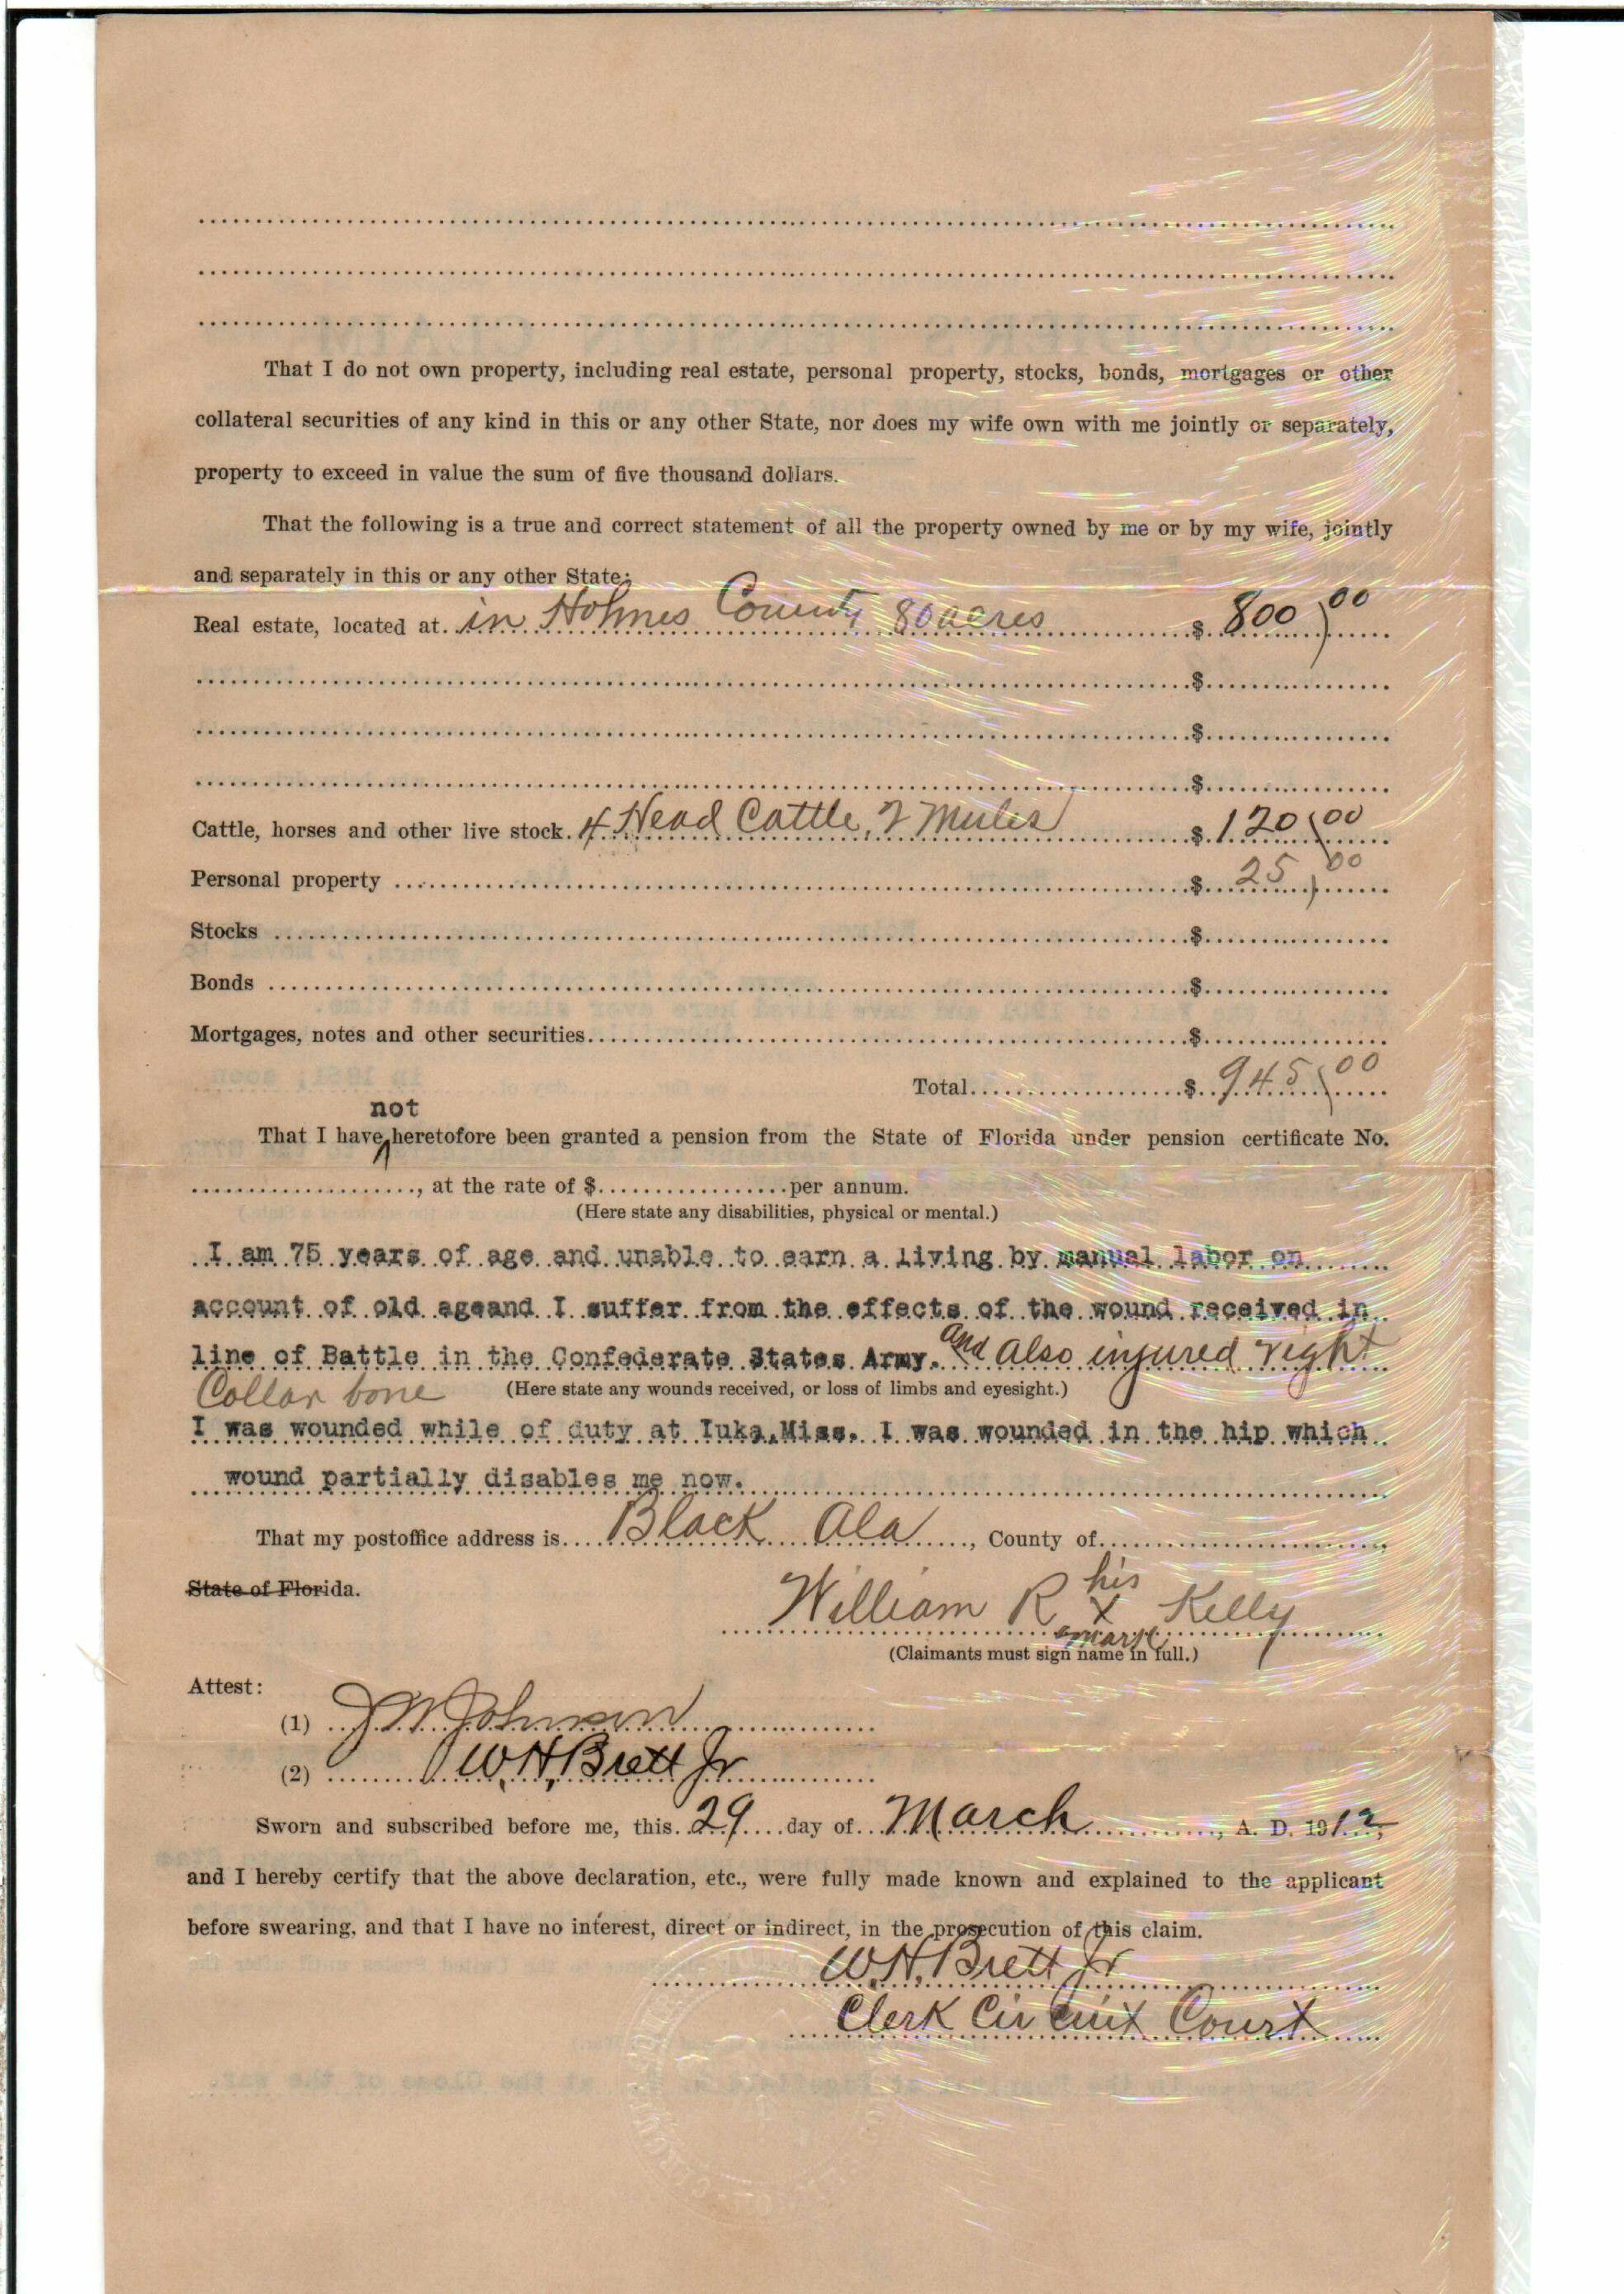 That I do not own property, including real estate, personal property, stocks, bonds, mortgages or other
collateral securities of any kind in this or any other State, nor does my wife own with me jointly or separately,
property to exceed in value the sum of five thousand dollars.
That the following is a true and correct statement of all the property owned by me or by my wife, jointly
and separately in this or any other State:
Real estate, located at in Holmes County 80 acres $ 800 00
$
$
$
Cattle, horses and other live stock. 4 Head Cattle, 2 Mules $ 120 00
Personal property $ 25 00
Stocks $
Bonds $
Mortgages, notes and other securities $
Total $ 945 00
not
That I have heretofore been granted a pension from the State of Florida under pension certificate No.
, at the rate of $ per annum.
(Here state any disabilities, physical or mental.)
I am 75 years of age and unable to earn a living by manual labor on
account of old ageand I suffer from the effects of the wound received in
line of Battle in the Confederate States Army. and Also injured right
Collar bone (Here state any wounds received, or loss of limbs and eyesight.)
I was wounded while of duty at Iuka,Miss. I was wounded in the hip which
wound partially disables me now.
That my postoffice address is Black Ala , County of ,
State of Florida.
his
William R X Kelly
mark
(Claimants must sign name in full.)
Attest:
(1) J W Johnson
(2) W.H. Brett Jr
Sworn and subscribed before me, this 29 day of March , A. D. 1912,
and I hereby certify that the above declaration, etc., were fully made known and explained to the applicant
before swearing, and that I have no interest, direct or indirect, in the prosecution of this claim.
W.H. Brett Jr
Clerk Circuit Court